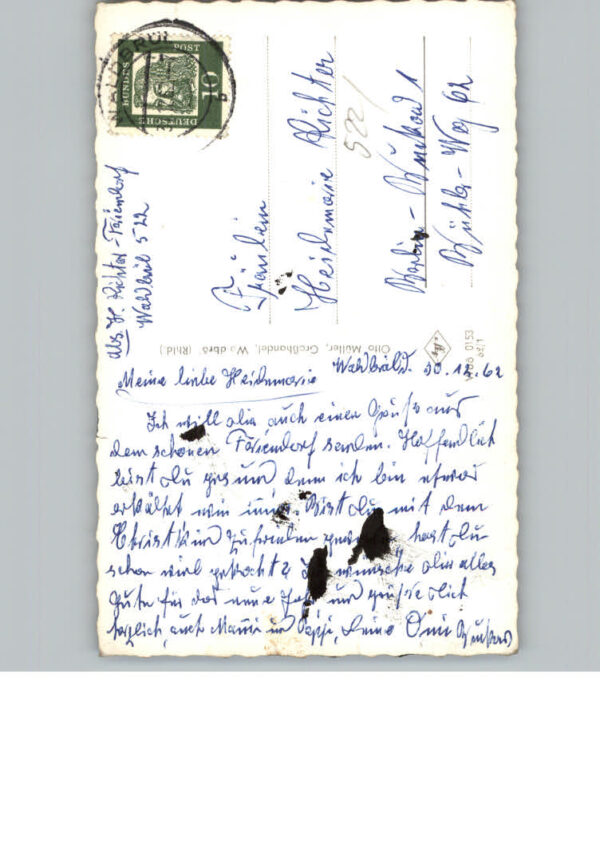 DEUTSCHE
BUNDESPOST
10
WALDBRÖL
b
Abs. H. Richter - Feriendorf
Waldbröl 522
Fräulein
Heidemarie Richter
522/
Berlin - Buckow 1
Weg 62
Otto Müller, Großhandel, Waldbröl (Rhld.)
0153
Waldbröl d. 30.12.62
Meine liebe Heidemarie
Ich will dir auch einen Gruß aus
dem schönen Feriendorf senden. Hoffendlich
bist du gesund denn ich bin etwas
erkältet wie immer. Bist du mit dem
Christkind zufrieden gewesen hast du
schon viel gekocht? Ich wünsche dir alles
Gute für das neue Jahr und grüße dich
herzlich auch Mammi und Pappi, Deine Omi